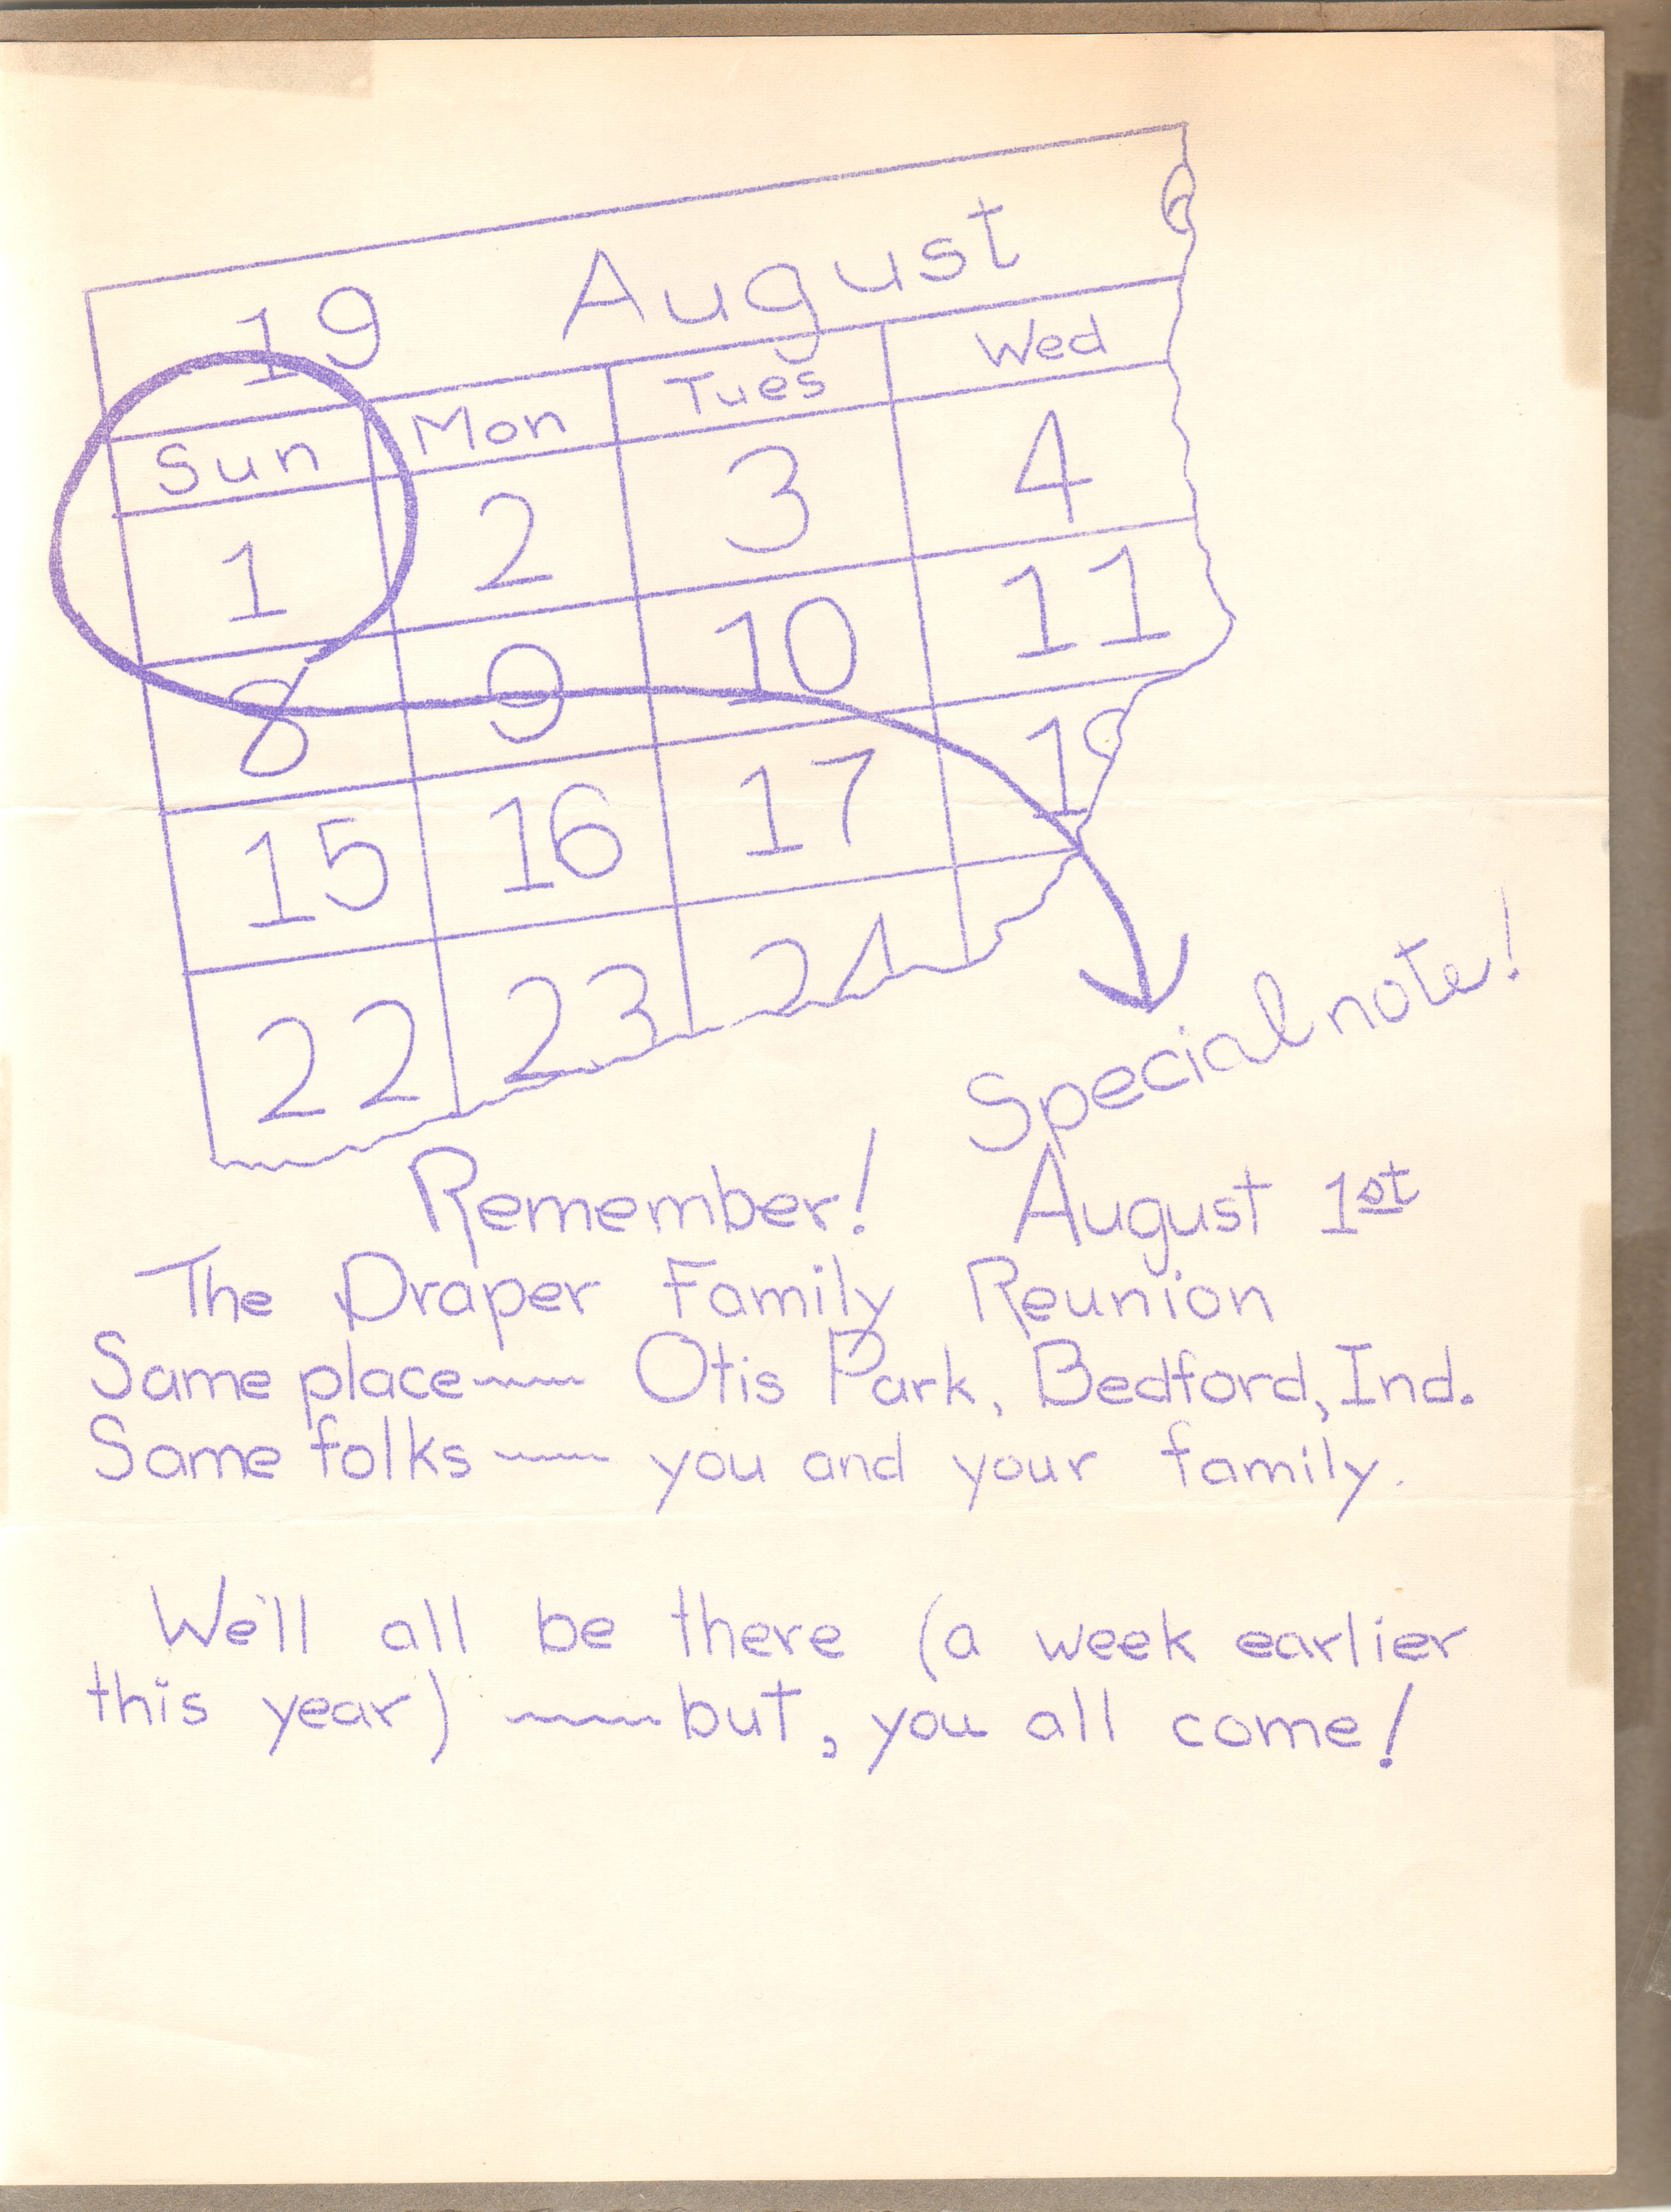 19 August 6
Sun Mon Tues Wed
1 2 3 4
8 9 10 11
15 16 17 1
22 23 24
Special note!
Remember! August 1st
The Draper Family Reunion
Same place~~~ Otis Park, Bedford, Ind.
Same folks~~~ you and your family.
We'll all be there (a week earlier
this year) ~~~but, you all come!